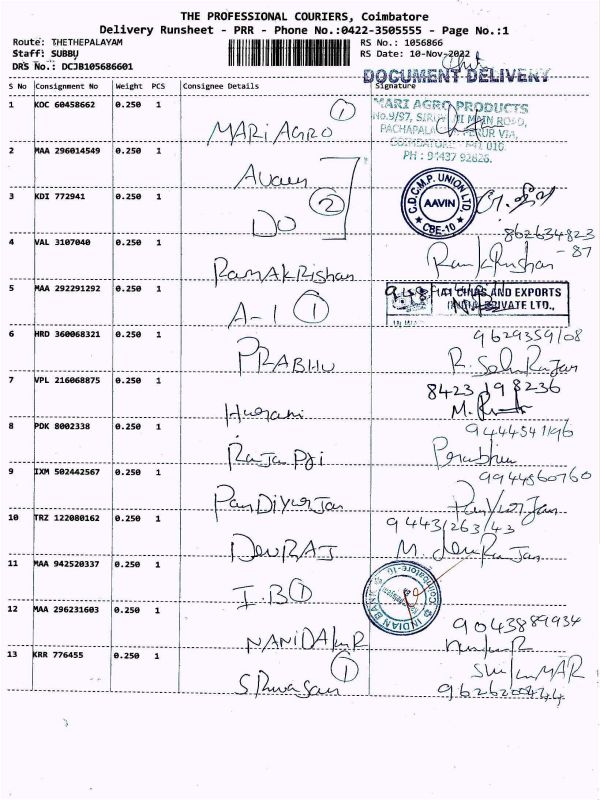 THE PROFESSIONAL COURIERS, Coimbatore
Delivery Runsheet - PRR - Phone No.:0422-3505555 - Page No.:1
Route: THETHEPALAYAM RS No.: 1056866
Staff: SUBBU RS Date: 10-Nov-2022
DRS No.: DCJB105686601
DOCUMENT DELIVERY
S No Consignment No Weight PCS Consignee Details Signature
1 KOC 60458662 0.250 1 MARI AGRO 1
MARI AGRO PRODUCTS
MAIN ROAD,
PERUR VIA,
PH : 94437 92626.
2 MAA 296014549 0.250 1
C.D.C.M.P. UNION LTD.
AAVIN
CBE-10
3 KDI 772941 0.250 1 DO 2
862634823
-87
4 VAL 3107040 0.250 1 RamAkRishan
5 MAA 292291292 0.250 1 A-1 1
AND EXPORTS
PRIVATE LTD.,
6 HRD 360068321 0.250 1 PRABHU
9629359108
7 VPL 216068875 0.250 1
8423198236
8 PDK 8002338 0.250 1
9444541196
9 IXM 502442567 0.250 1
9944860760
10 TRZ 122080162 0.250 1 DevRAJ
9443126343
11 MAA 942520337 0.250 1 I.B 1
INDIAN BANK
Coimbatore-10
12 MAA 296231603 0.250 1
9043889934
13 KRR 776455 0.250 1 1